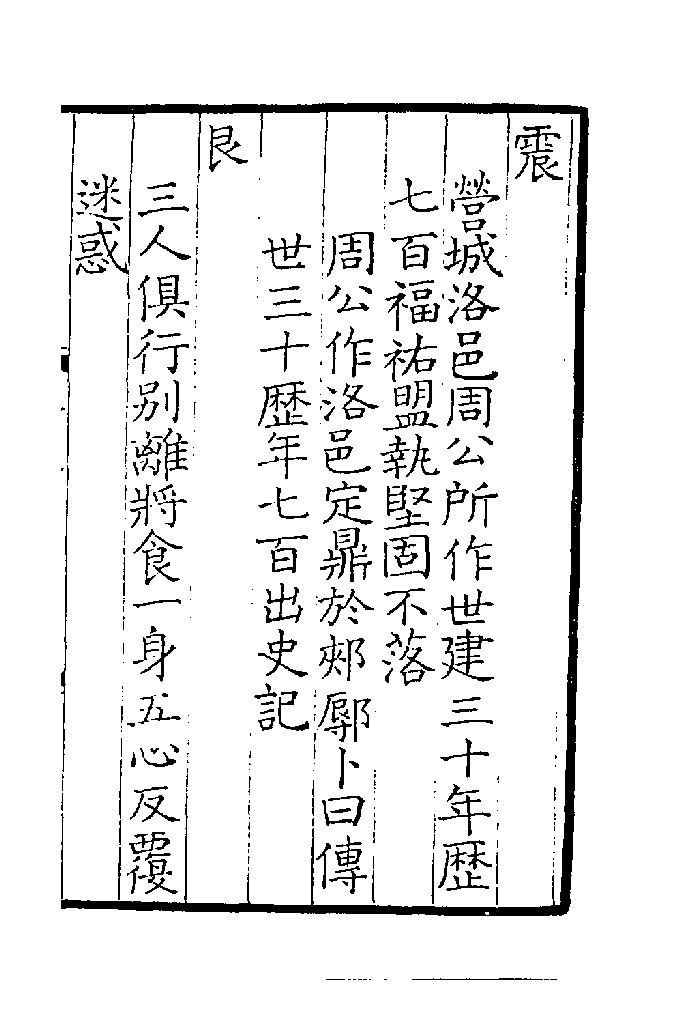 震
營城洛邑周公所作世建三十年歴
七百福祐盟執堅固不落
周公作洛邑定鼎於郟鄏卜曰傳
世三十歴年七百出史記
艮
三人俱行别離將食一身五心反覆
迷惑